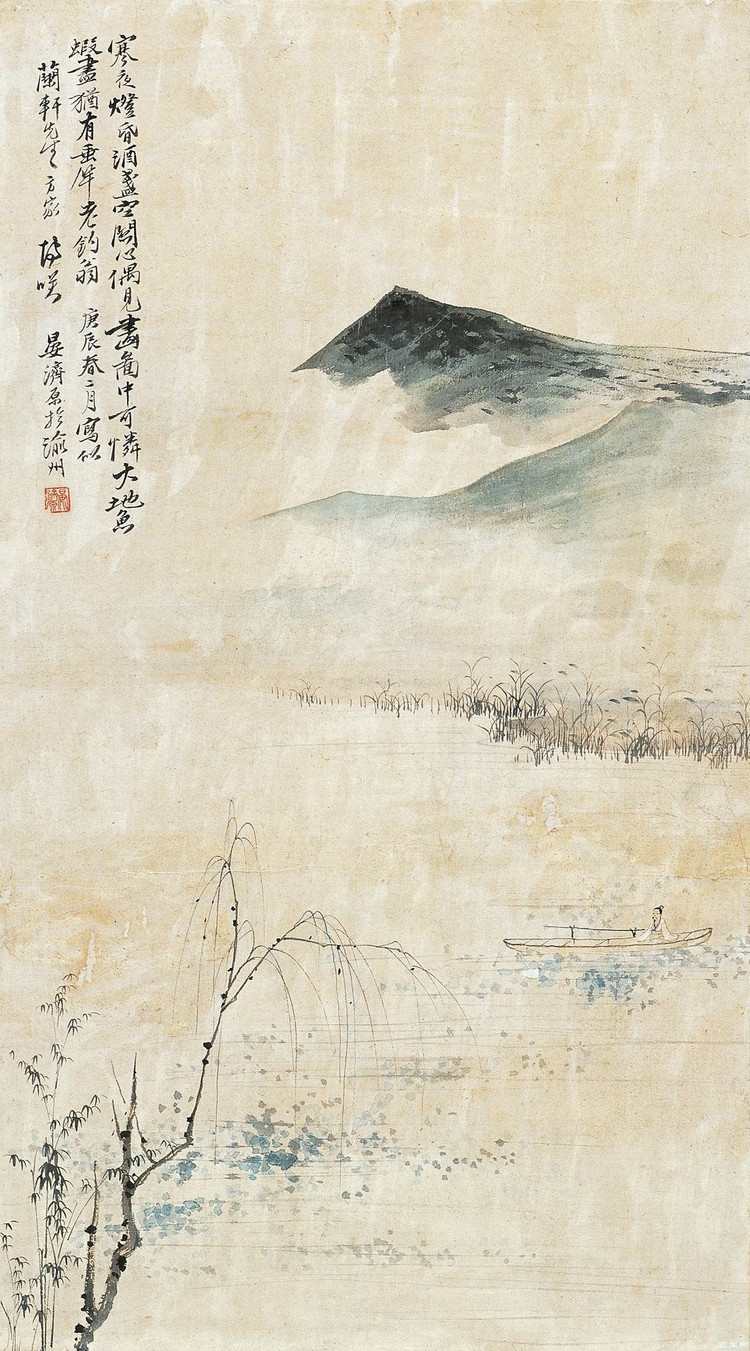 寒夜燈昏酒盞空關心偶見畫啚中可憐大地魚
蝦盡猶有垂竿老釣翁 庚辰春二月寫似
蘭軒先生方家 博咲 晏濟原於渝州